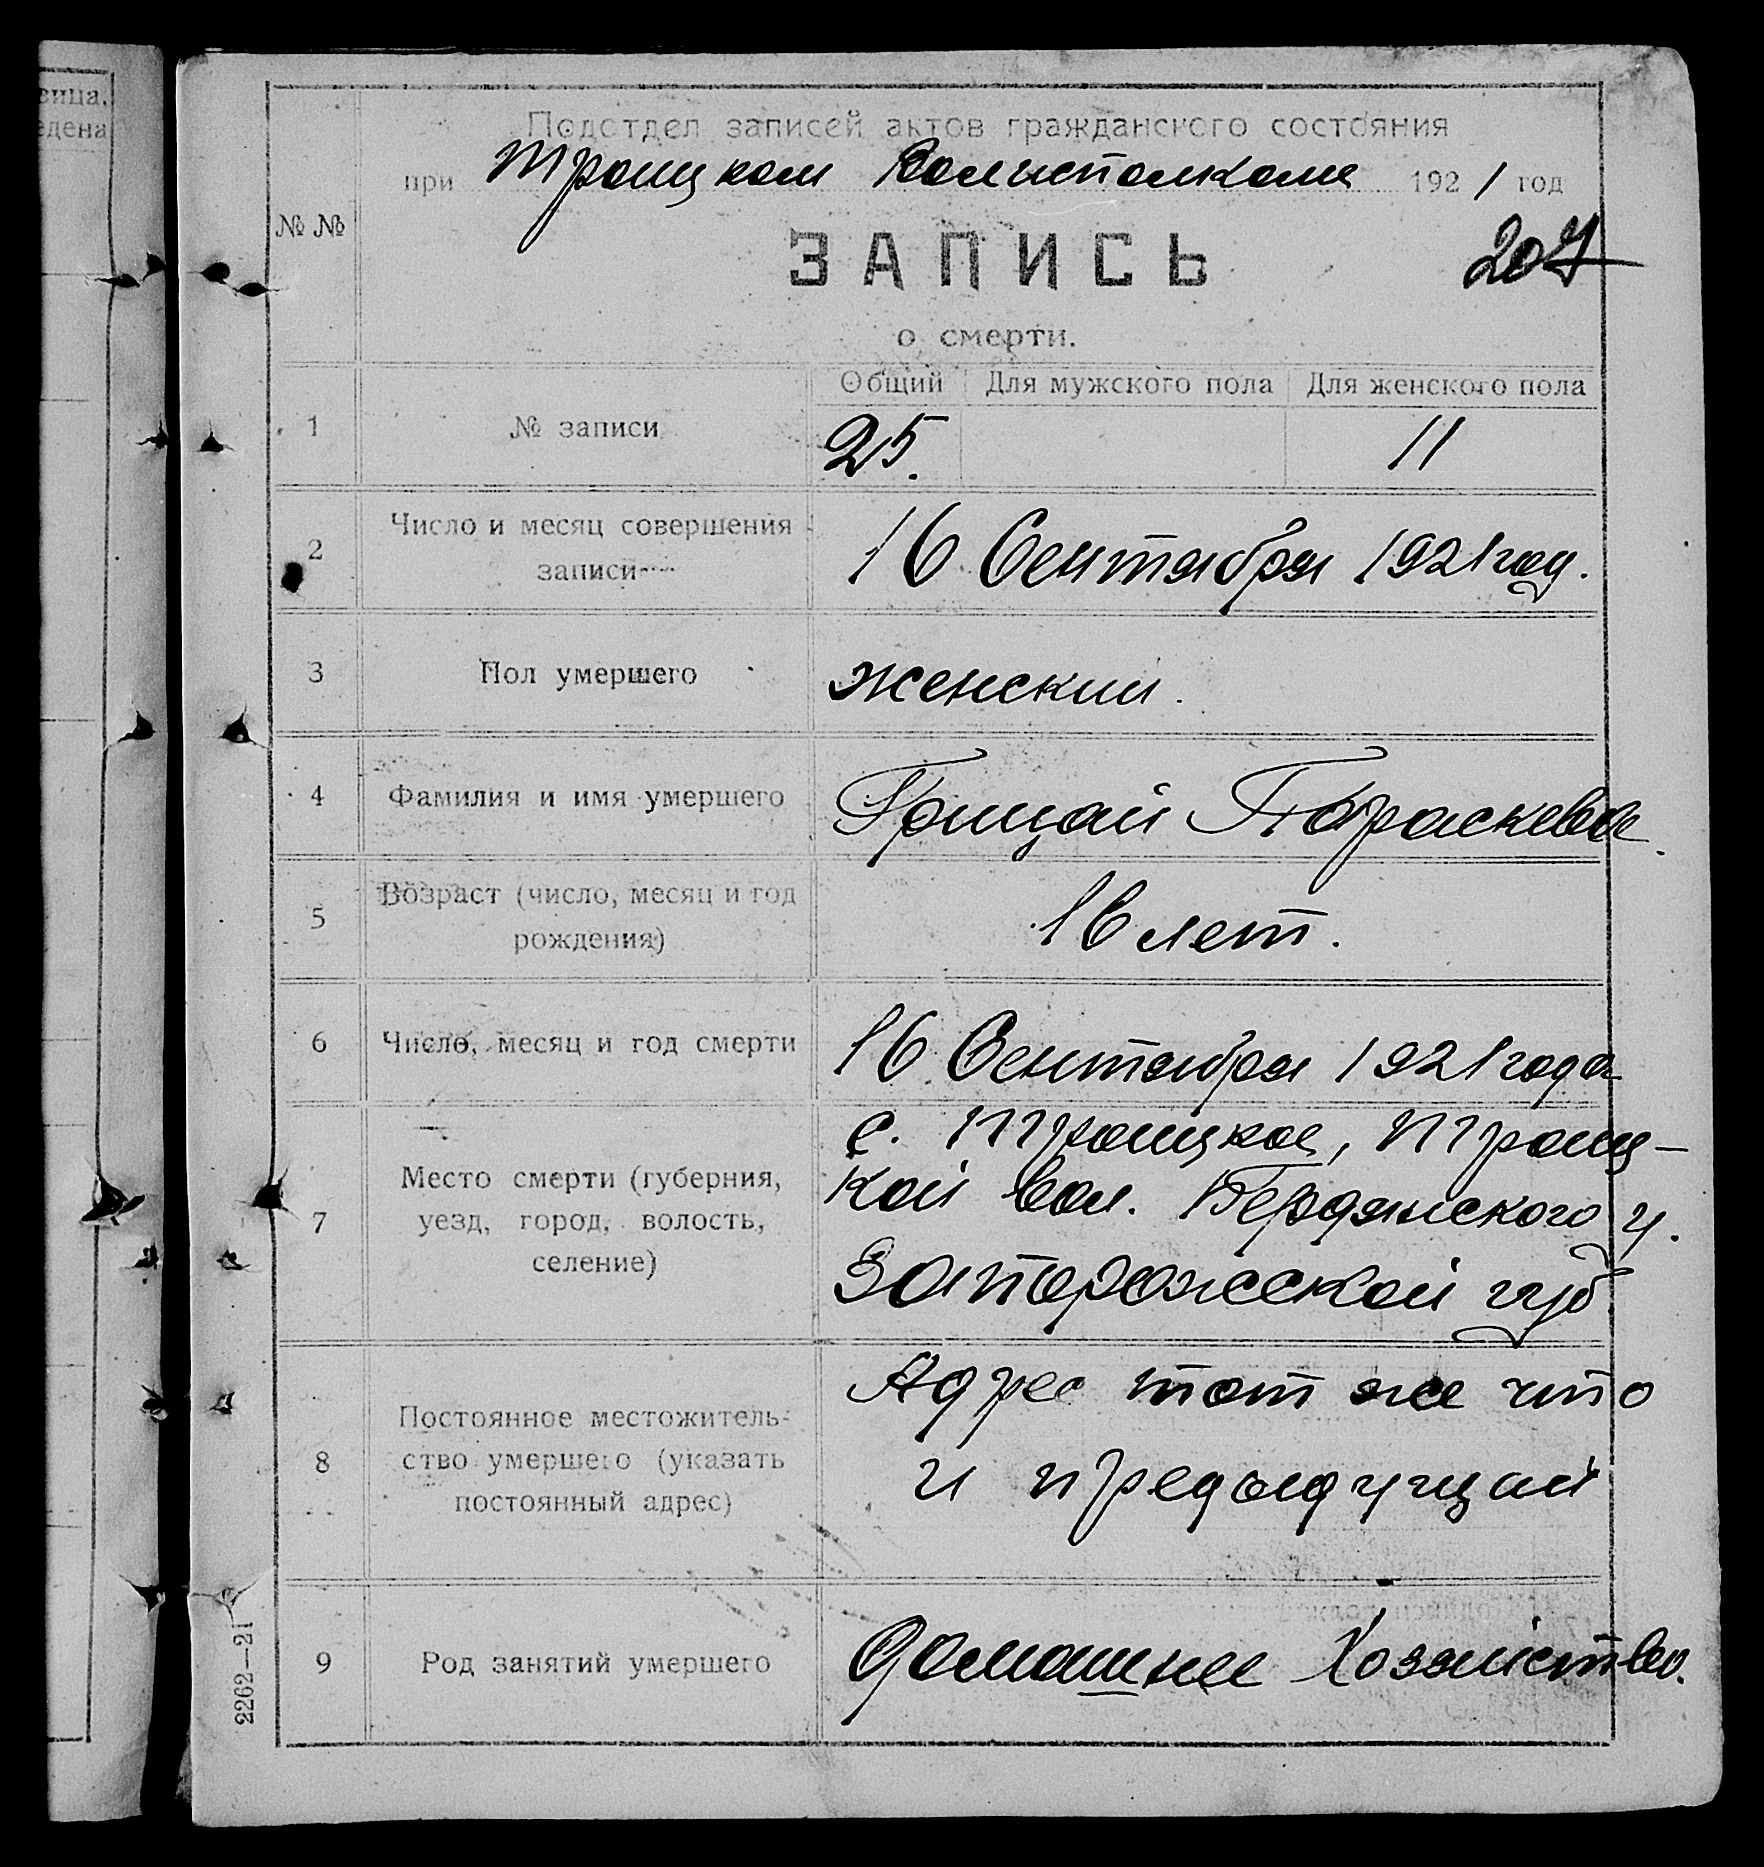 зица,
едена
Подотдел записей актов гражданского состояния
при Троицком Волисполкоме 1921 год
№ №
ЗАПИСЬ
207
о смерти.
Общий Для мужского пола Для женского пола
1 № записи 25. 11
2 Число и месяц совершения
записи 16 Сентября 1921 год.
3 Пол умершего женский.
4 Фамилия и имя умершего Грицай Параскева
5 Возраст (число, месяц и год
рождения) 16 лет.
6 Число, месяц и год смерти 16 Сентября 1921 года
7 Место смерти (губерния,
уезд, город, волость,
селение)
с. Троицкое, Троиц-
кой вол. Бердянского у.
Запорожеской губ.
8 Постоянное местожитель-
ство умершего (указать
постоянный адрес)
Адрес тот же что
и предыдущий
9 Род занятий умершего домашнее Хозяйство.
2262—21